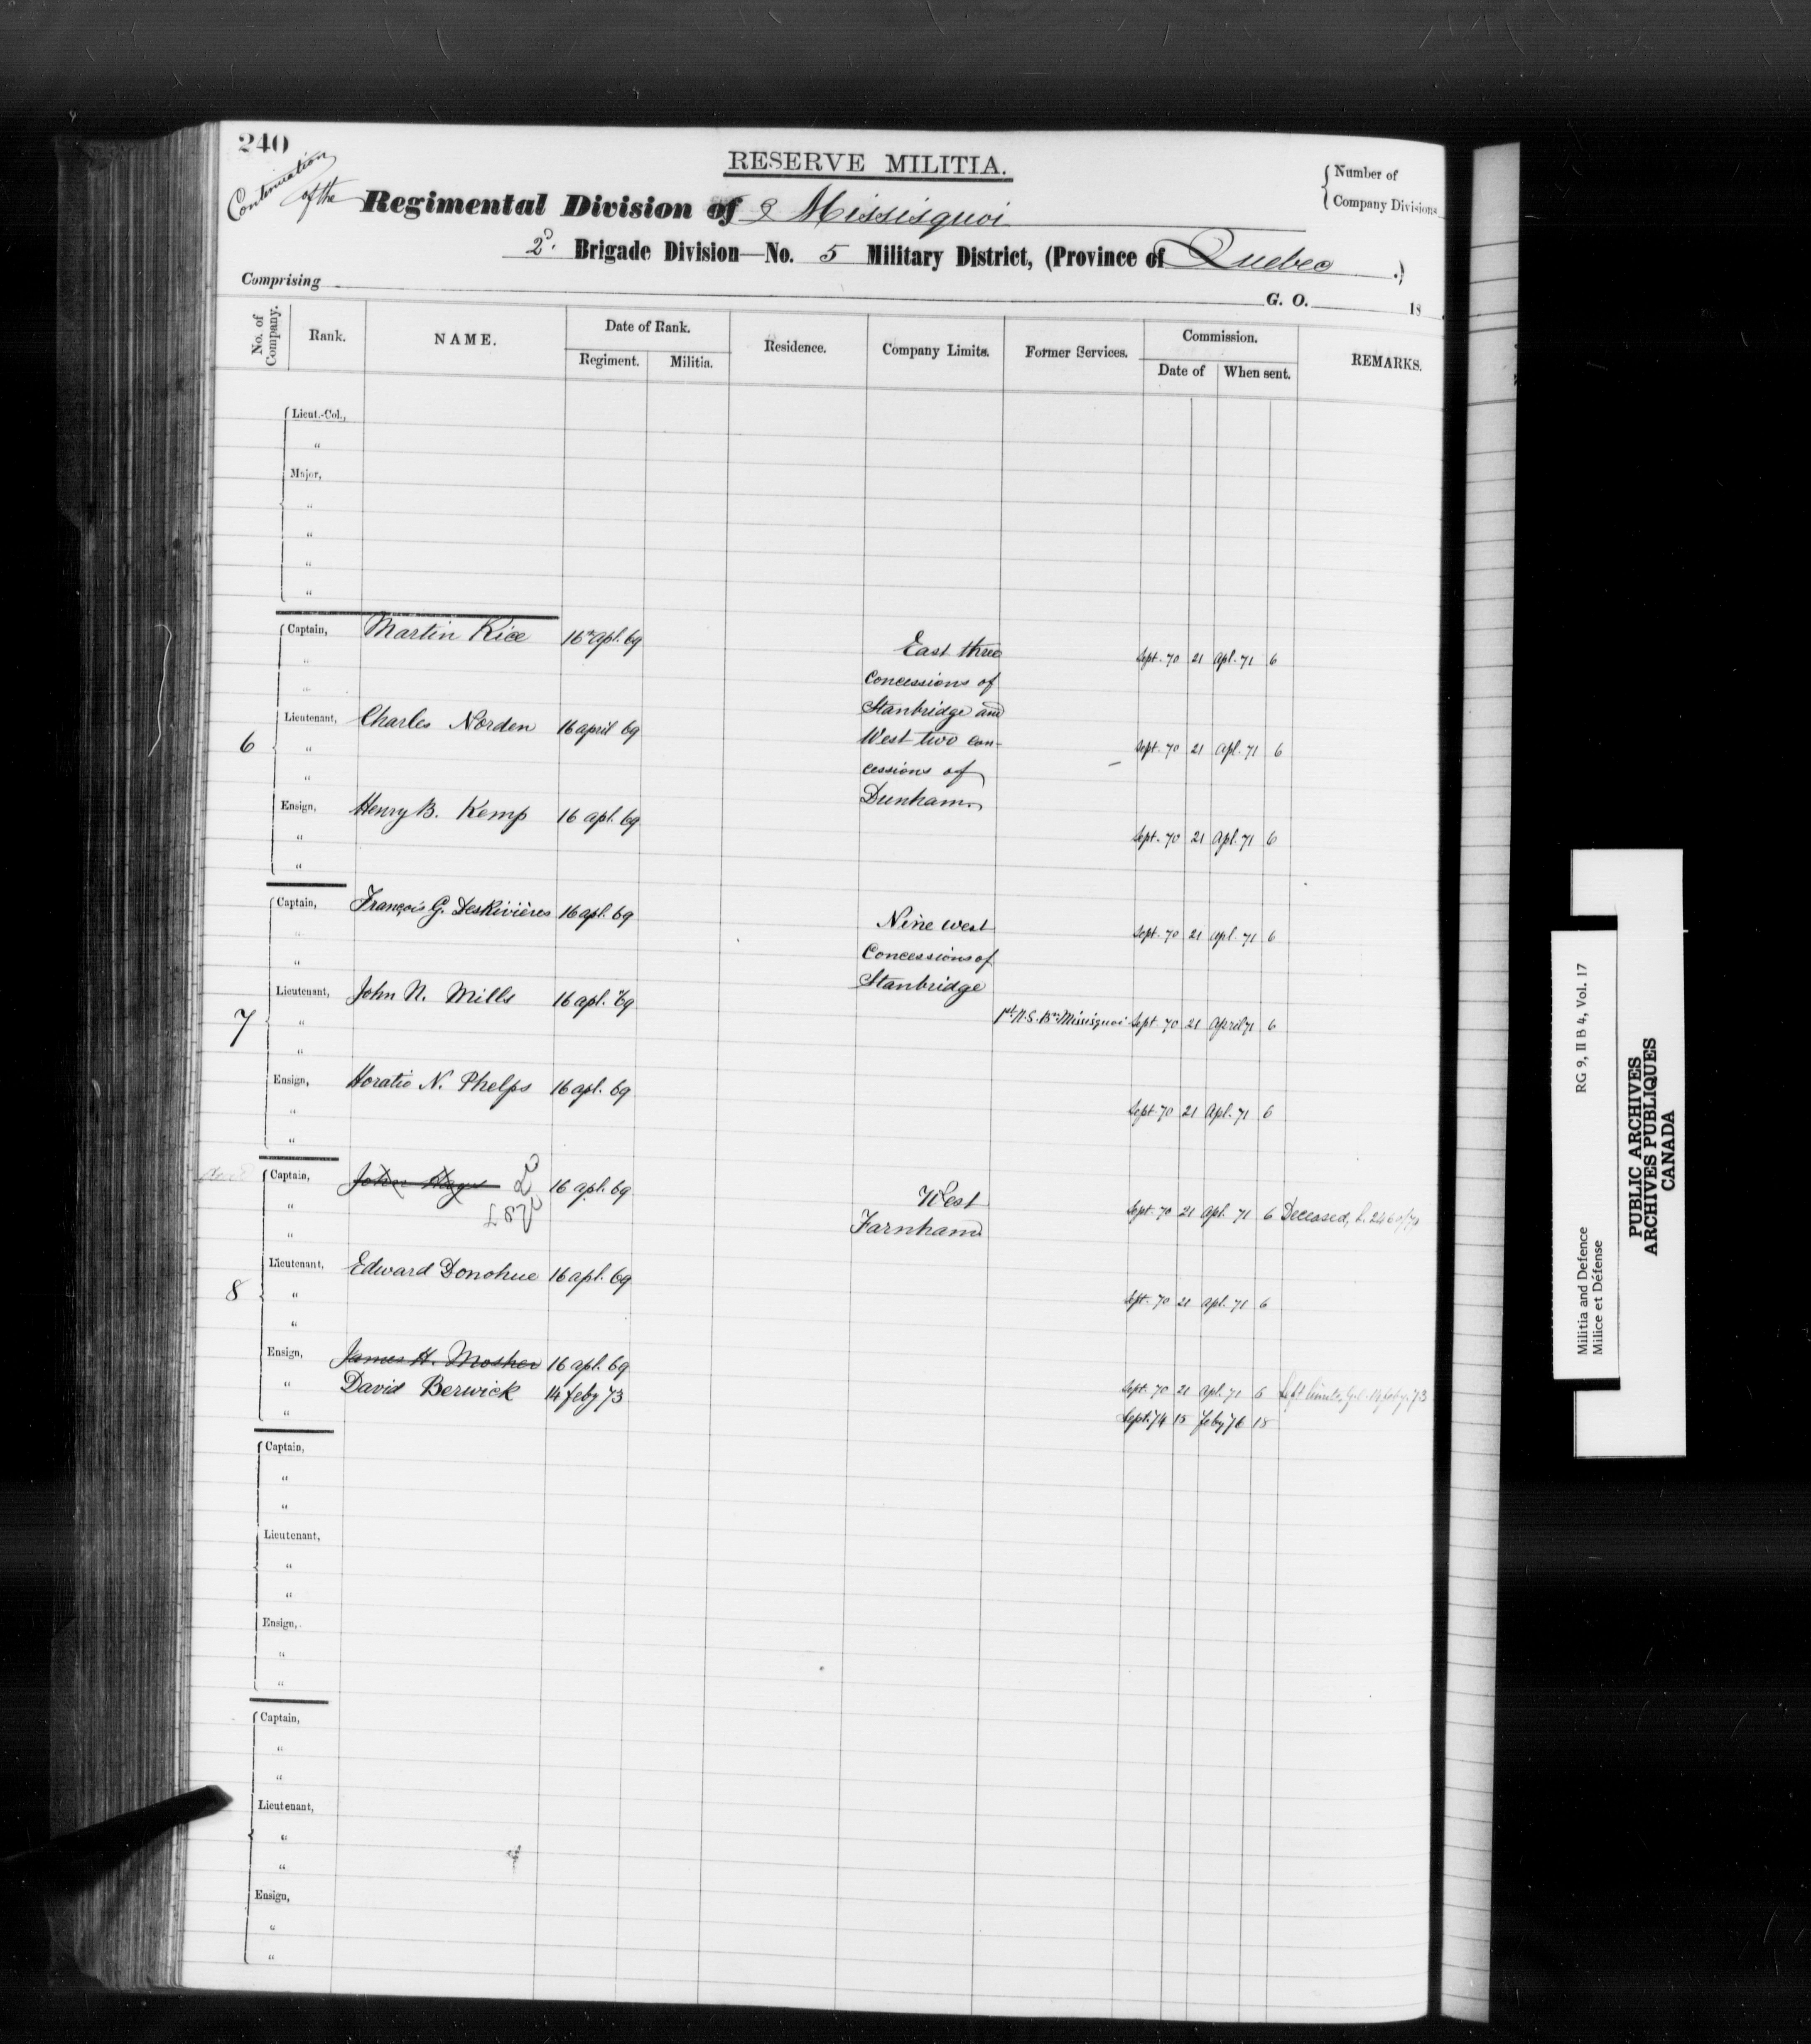 240
Continuation of the
RESERVE MILITIA.
{ Number of
Company Divisions
Regimental Division of Missisquoi
2d. Brigade Division—No. 5 Military District, (Province of Quebec .)
Comprising
G. O. 18
No. of Company. Rank. NAME. Date of Rank. Residence. Company Limits. Former Services. Commission. REMARKS.
Regiment. Militia. Date of When sent.
Lieut.-Col.,
"
Major,
"
"
"
"
6
Captain, Martin Rice 16th apl. 69 East three Sept. 70 21 Apl. 71 6
" concessions of
" Stanbridge and
Lieutenant, Charles Norden 16 april 69 West two con- Sept. 70 21 Apl. 71 6
" cessions of
" Dunham
Ensign, Henry B. Kemp 16 apl. 69 Sept. 70 21 Apl. 71 6
"
"
7
Captain, François G. DesRivières 16 apl. 69 Nine west Sept. 70 21 Apl. 71 6
" Concessions of
" Stanbridge
Lieutenant, John N. Mills 16 apl. 69 1st N.S. Bn Missisquoi Sept 70 21 April 71 6
"
"
Ensign, Horatio N. Phelps 16 apl. 69 Sept 70 21 Apl. 71 6
"
"
8
Captain, John 16 apl. 69 West Sept. 70 21 Apl. 71 6 Deceased,
" Farnham
"
Lieutenant, Edward Donohue 16 apl. 69 Sept. 70 21 Apl. 71 6
"
"
Ensign, James H. Mosher 16 apl. 69 Sept. 70 21 Apl. 71 6 Left limits, 14 feby. 73
" David Berwick 14 feby 73 Sept. 74 15 Feby 76 18
"
Captain,
"
"
Lieutenant,
"
"
Ensign,
"
"
Captain,
"
"
Lieutenant,
"
"
Ensign,
"
"
Militia and Defence RG 9, II B 4, Vol. 17
Milice et Défense
PUBLIC ARCHIVES
ARCHIVES PUBLIQUES
CANADA